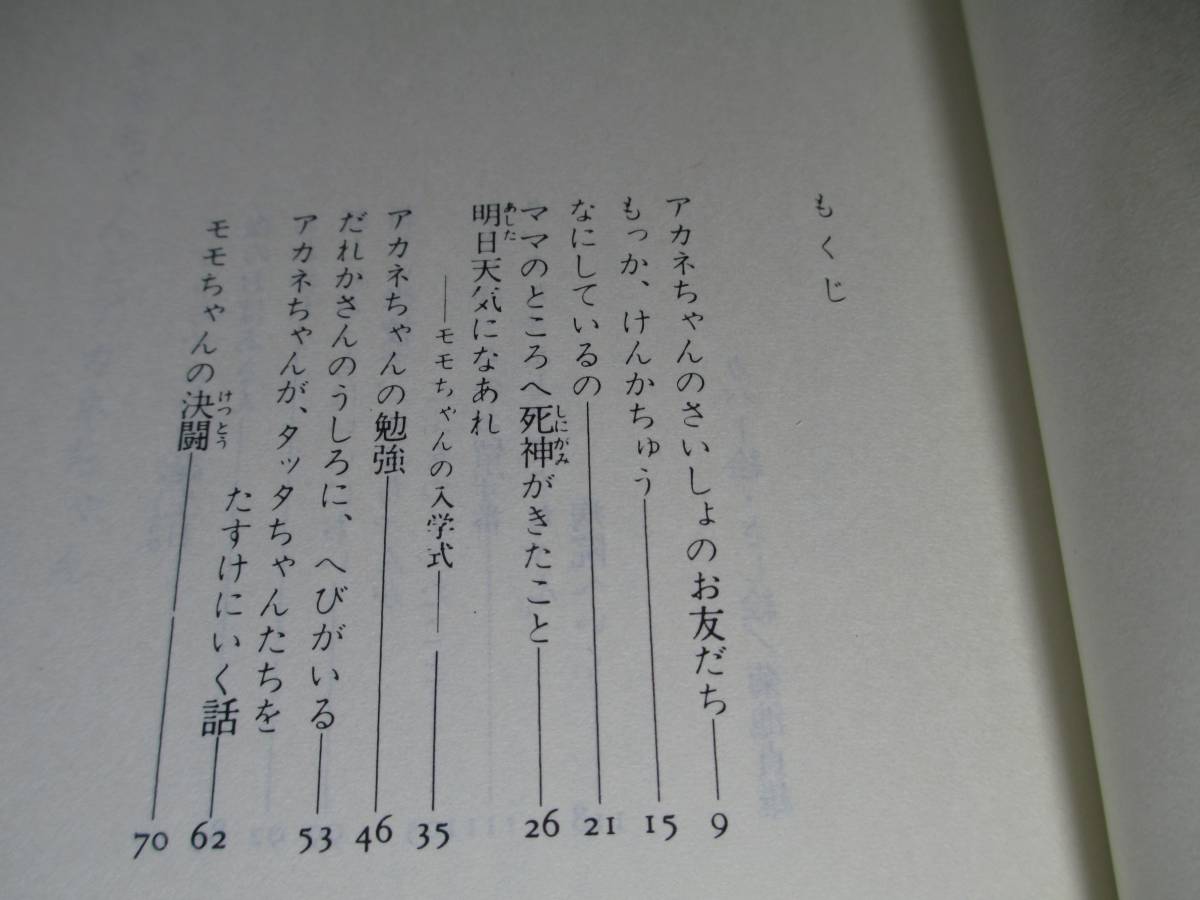 もくじ
アカネちゃんのさいしょのお友だち――9
もっか、けんかちゅう――15
なにしているの――21
ママのところへ死神がきたこと――26
明日天気になあれ
――モモちゃんの入学式―― ――35
アカネちゃんの勉強――46
だれかさんのうしろに、へびがいる――53
アカネちゃんが、タッタちゃんたちを
たすけにいく話――62
モモちゃんの決闘――70